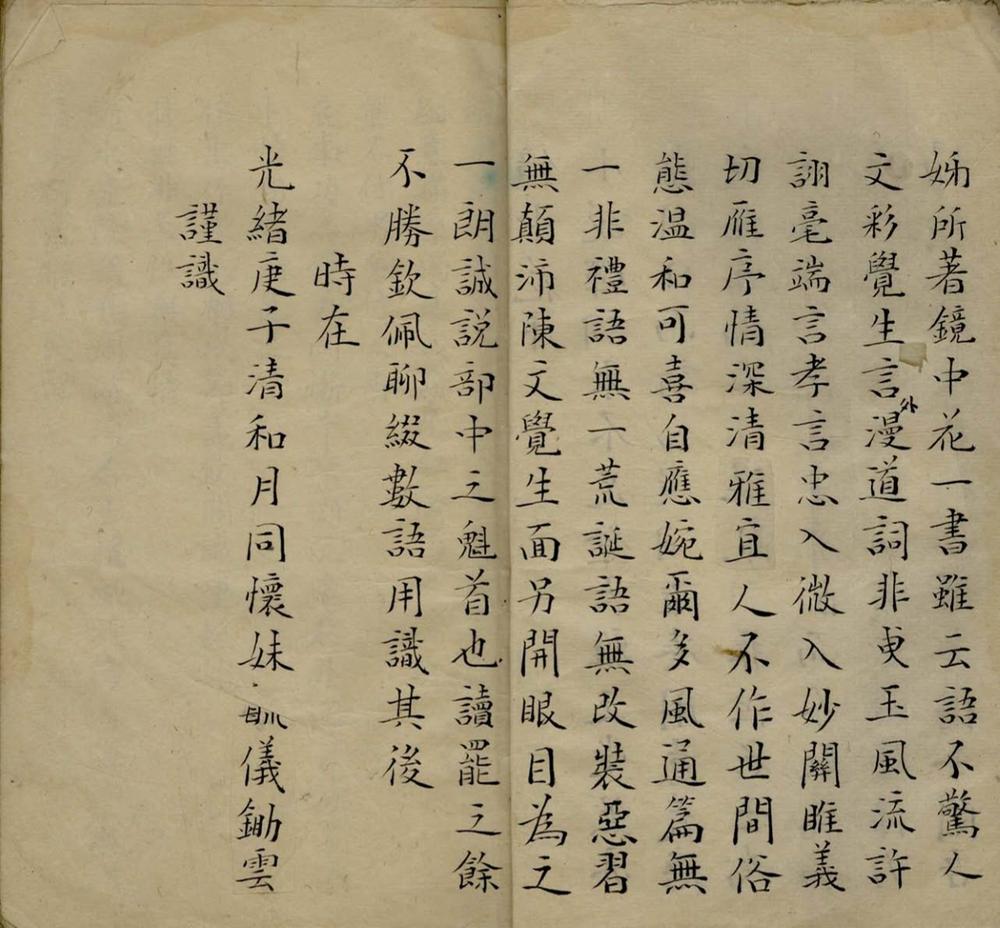 姊所著鏡中花一書雖云語不驚人
文彩覺生言外漫道詞非玉風流許
詡毫端言孝言忠入微入妙關睢義
切雁序情深清雅宜人不作世間俗
態温和可喜自應婉爾多風通篇無
一非禮語無一荒誕語無改裝惡習
無顛沛陳文覺生面另開眼目為之
一朗誠説部中之魁首也讀罷之餘
不勝欽佩聊綴數語用識其後
時在
光緒庚子清和月同懷妹儀鋤雲
謹識